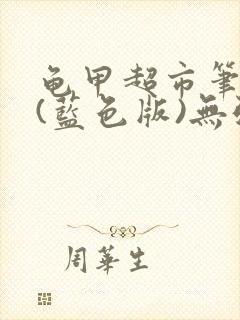 龟甲超市筆
(藍色版)無
周華生